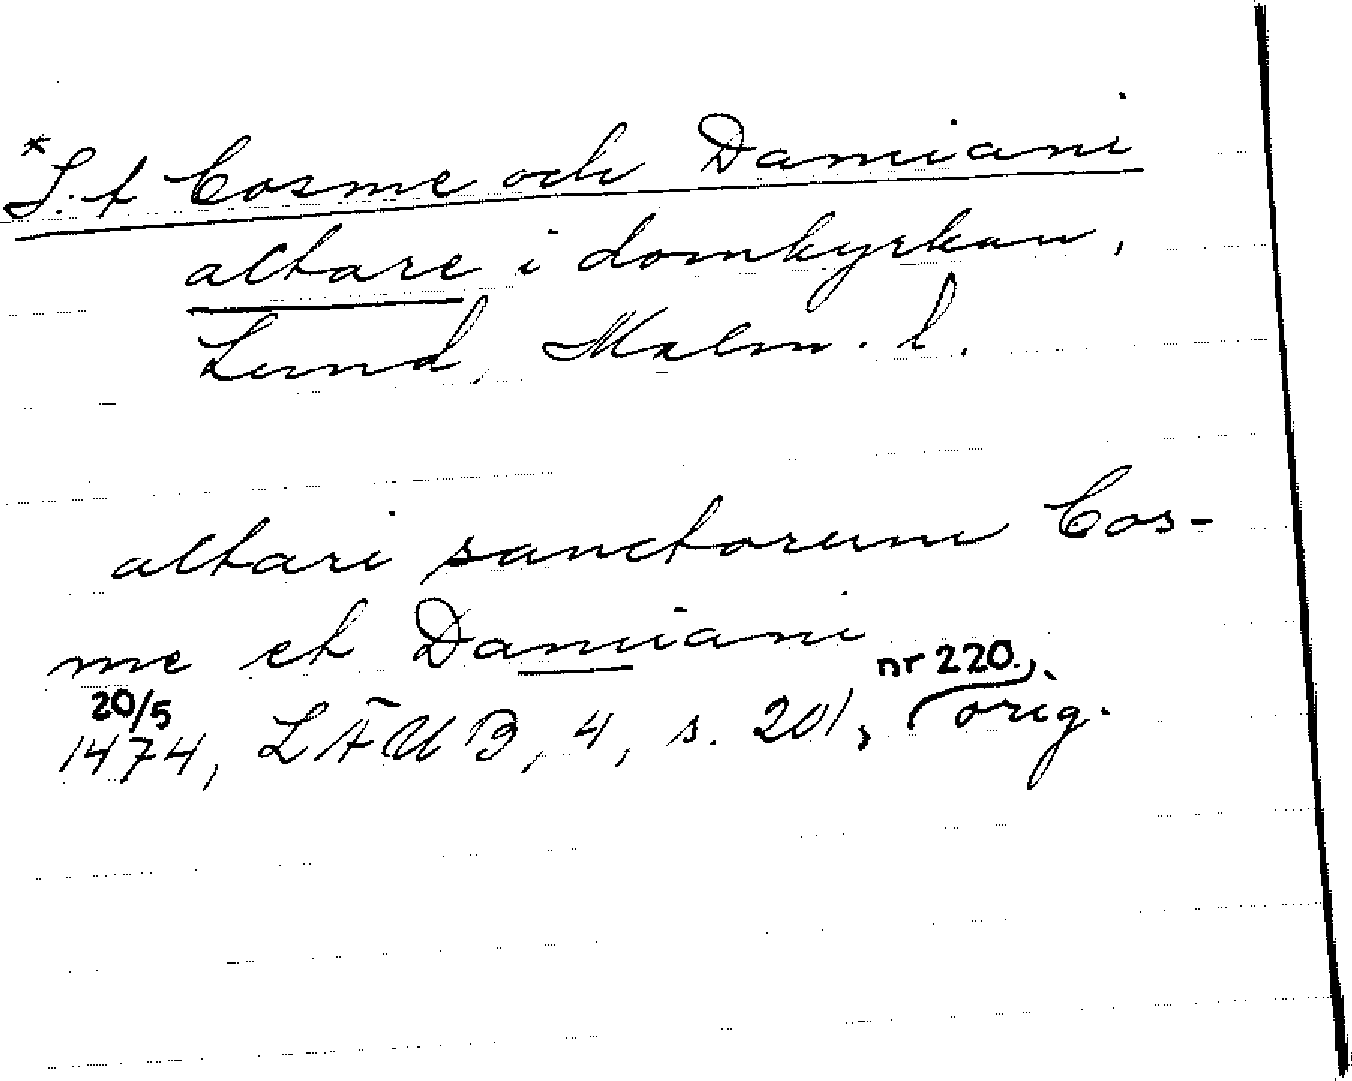 *S:t Cosme och Damiani
altare i domkyrkan,
Lund, Malm. l.
altari sanctorum Cos-
me et Damiani
20/5 nr 220.,
1474, LÄUB, 4, s. 201, orig.